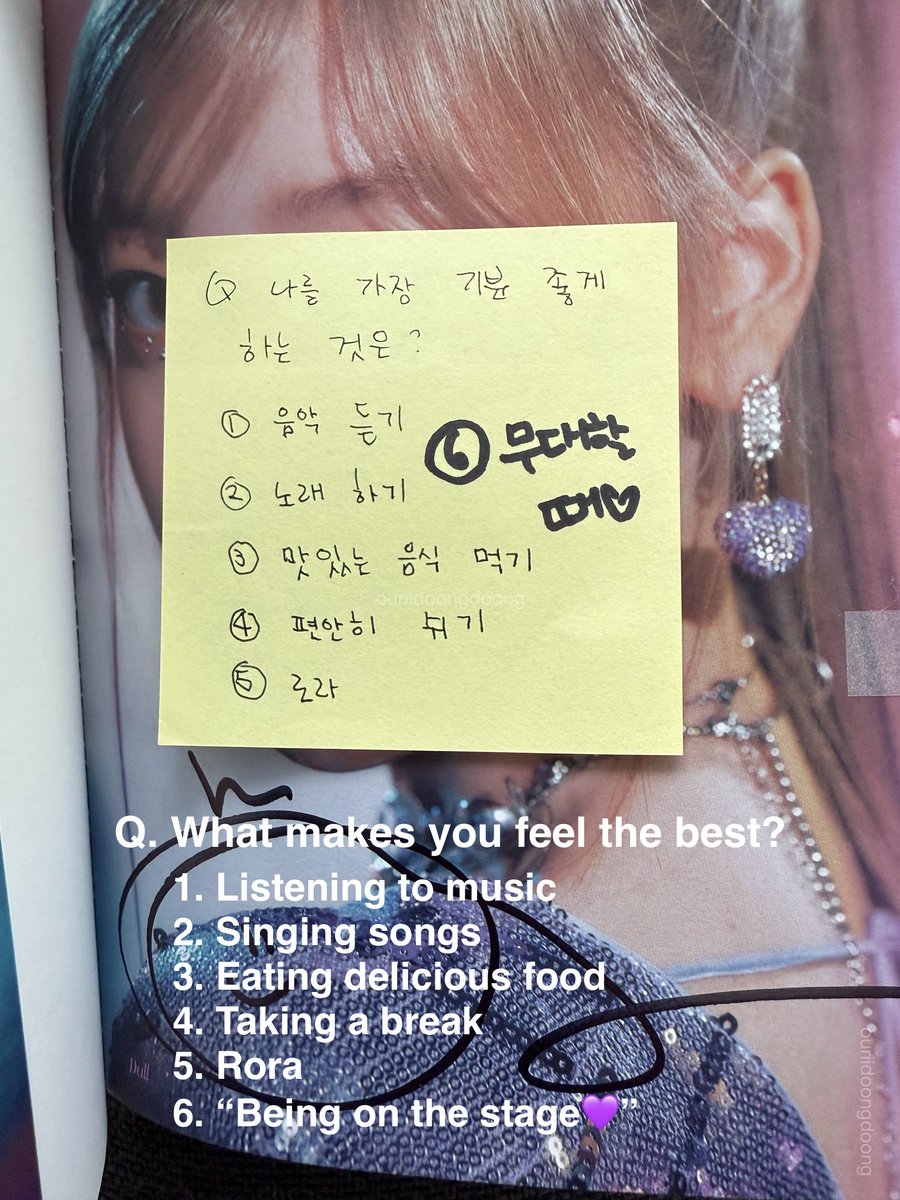 Q 나를 가장 기분 좋게
하는 것은?
① 음악 듣기
② 노래 하기
③ 맛있는 음식 먹기
④ 편안히 쉬기
⑤ 로라
⑥ 무대할
때♡
ouriidoongdoong
Q. What makes you feel the best?
1. Listening to music
2. Singing songs
3. Eating delicious food
4. Taking a break
5. Rora
6. “Being on the stage💜”
Dall
ouriidoongdoong